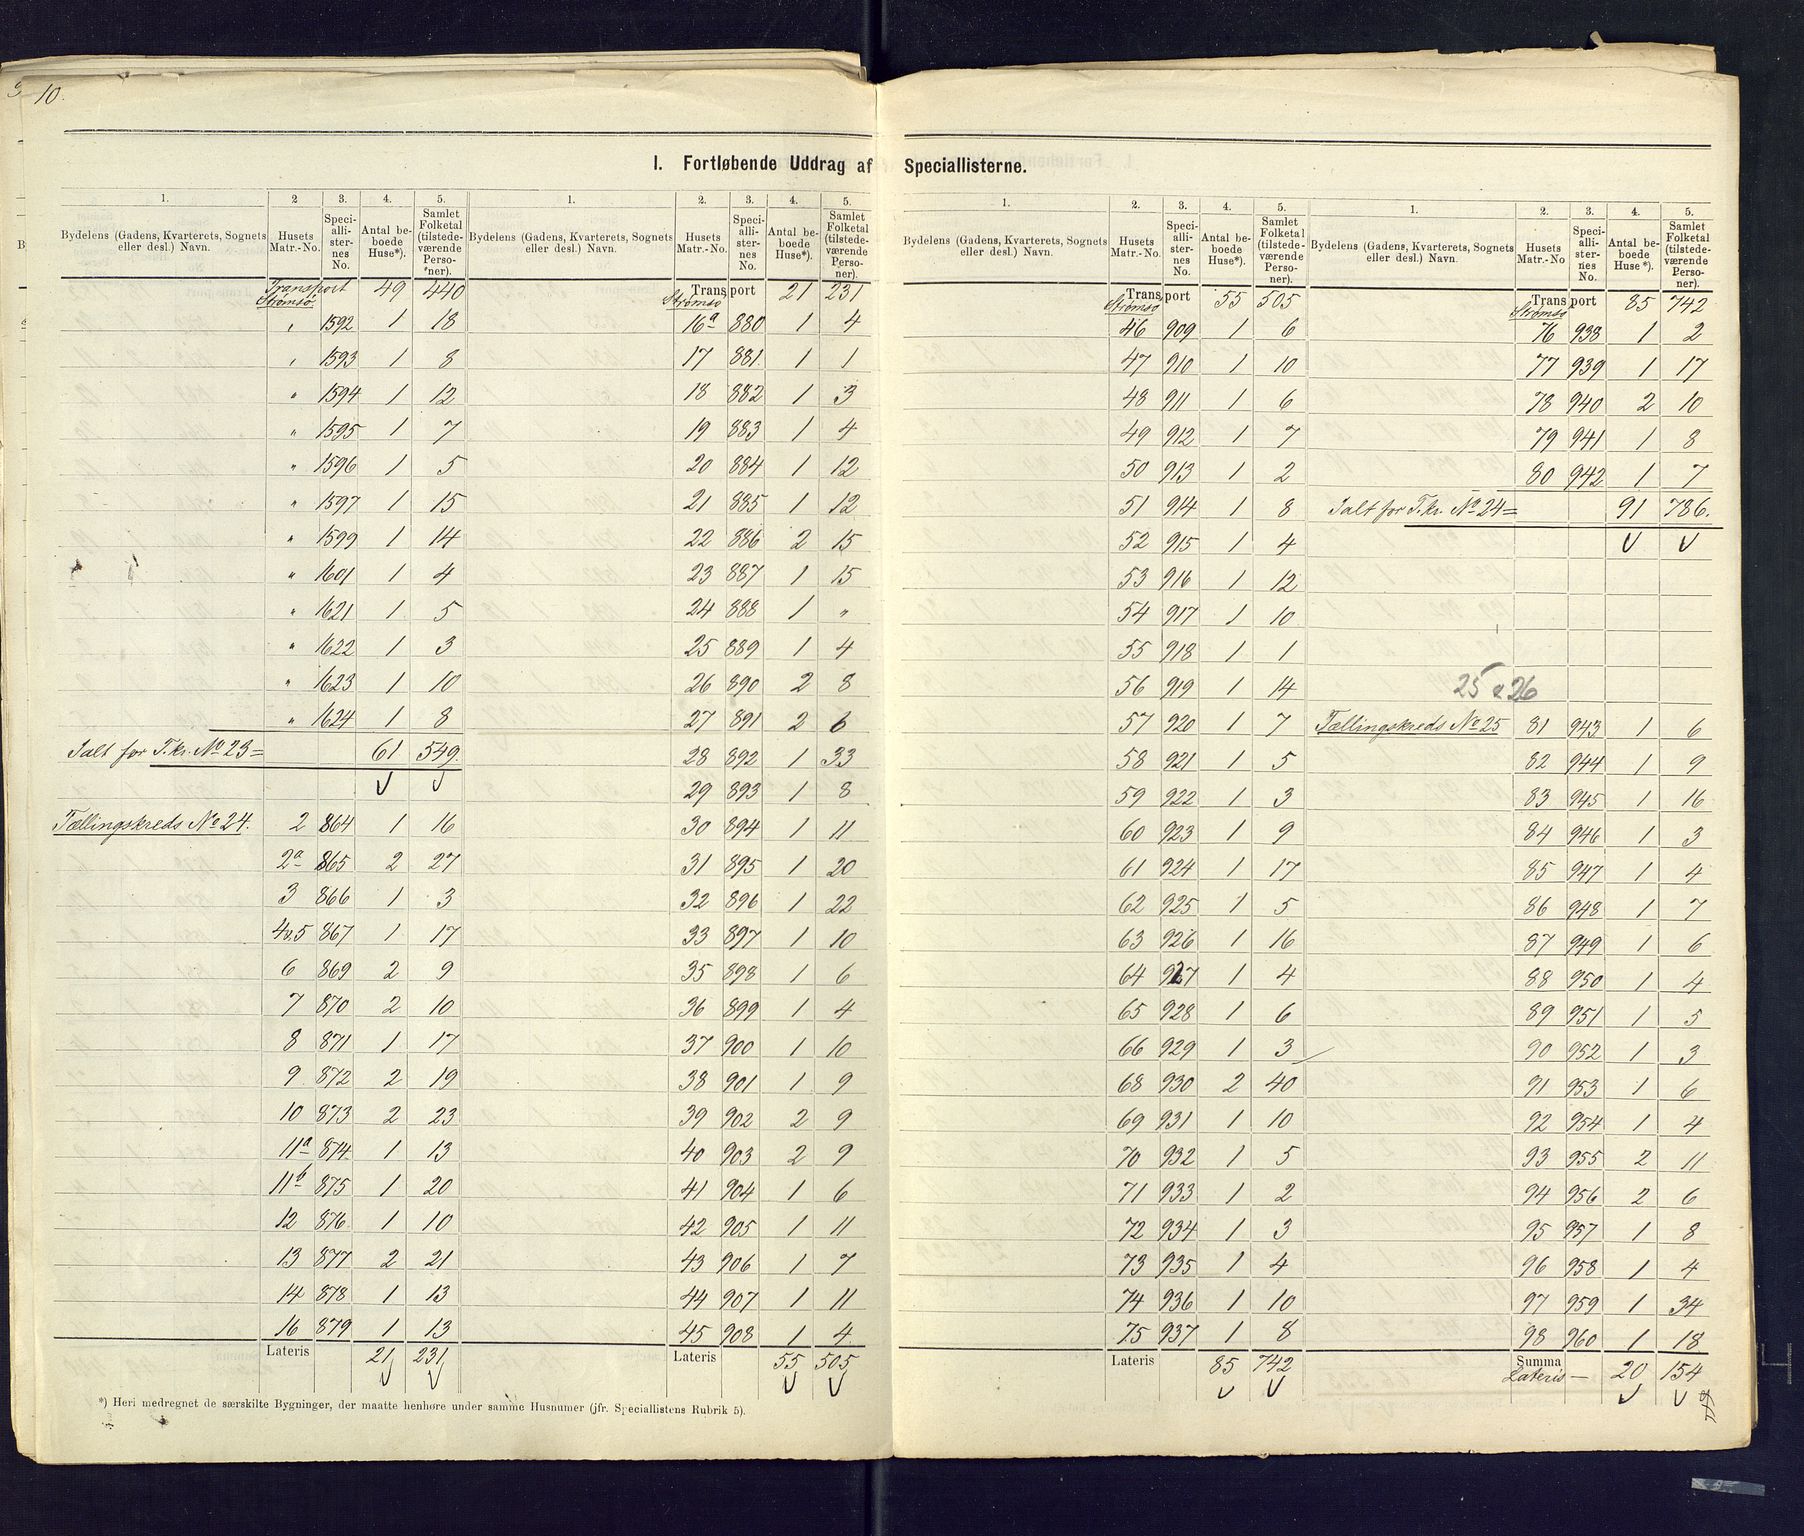 10.
I. Fortløbende Uddrag af Speciallisterne.
1. 2 3. 4. 5.
Bydelens (Gadens, Kvarterets, Sognets eller desl.) Navn. Husets Matr.-No. Speciallisternes No. Antal beboede Huse*). Samlet Folketal (tilstedeværende Personer).
Transport 49 440
Strømsø
" 1592 1 18
" 1593 1 8
" 1594 1 12
" 1595 1 7
" 1596 1 5
" 1597 1 15
" 1599 1 14
" 1601 1 4
" 1621 1 5
" 1622 1 3
" 1623 1 10
" 1624 1 8
Ialt for T.kr. No 23 = 61 549.
Tællingskreds No 24. 2 864 1 16
2a 865 2 27
3 866 1 3
4 o. 5 867 1 17
6 869 2 9
7 870 2 10
8 871 1 17
9 872 2 19
10 873 2 23
11a 874 1 13
11b 875 1 20
12 876 1 10
13 877 2 21
14 878 1 13
16 879 1 13
Lateris 21 231
1. 2. 3. 4. 5.
Bydelens (Gadens, Kvarterets, Sognets eller desl.) Navn. Husets Matr.-No. Speciallisternes No. Antal beboede Huse*). Samlet Folketal (tilstedeværende Personer).
Transport 21 231
Strømsø
16a 880 1 4
17 881 1 1
18 882 1 3
19 883 1 4
20 884 1 12
21 885 1 12
22 886 2 15
23 887 1 15
24 888 1 "
25 889 1 4
26 890 2 8
27 891 2 6
28 892 1 33
29 893 1 8
30 894 1 11
31 895 1 20
32 896 1 22
33 897 1 10
35 898 1 6
36 899 1 4
37 900 1 10
38 901 1 9
39 902 2 9
40 903 2 9
41 904 1 6
42 905 1 11
43 906 1 7
44 907 1 11
45 908 1 4
Lateris 55 505
*) Heri medregnet de særskilte Bygninger, der maatte henhøre under samme Husnumer (jfr. Speciallistens Rubrik 5).
1. 2. 3. 4. 5.
Bydelens (Gadens, Kvarterets, Sognets eller desl.) Navn. Husets Matr.-No. Speciallisternes No. Antal beboede Huse*). Samlet Folketal (tilstedeværende Personer).
Transport 55 505
Strømsø
46 909 1 6
47 910 1 10
48 911 1 6
49 912 1 7
50 913 1 2
51 914 1 8
52 915 1 4
53 916 1 12
54 917 1 10
55 918 1 1
56 919 1 14
57 920 1 7
58 921 1 5
59 922 1 3
60 923 1 9
61 924 1 17
62 925 1 5
63 926 1 16
64 927 1 4
65 928 1 6
66 929 1 3
68 930 2 40
69 931 1 10
70 932 1 5
71 933 1 2
72 934 1 3
73 935 1 4
74 936 1 10
75 937 1 8
Lateris 85 742
1. 2. 3. 4. 5.
Bydelens (Gadens, Kvarterets, Sognets eller desl.) Navn. Husets Matr.-No Speciallisternes No. Antal beboede Huse*). Samlet Folketal (tilstedeværende Personer).
Transport 85 742
Strømsø
76 938 1 2
77 939 1 17
78 940 2 10
79 941 1 8
80 942 1 7
Ialt for T.kr. No 24 = 91 786.
25 & 26
Tællingskreds No 25 81 943 1 6
82 944 1 9
83 945 1 16
84 946 1 3
85 947 1 4
86 948 1 7
87 949 1 6
88 950 1 4
89 951 1 5
90 952 1 3
91 953 1 6
92 954 1 4
93 955 2 11
94 956 2 6
95 957 1 8
96 958 1 4
97 959 1 34
98 960 1 18
Summa
Lateris — 20 154